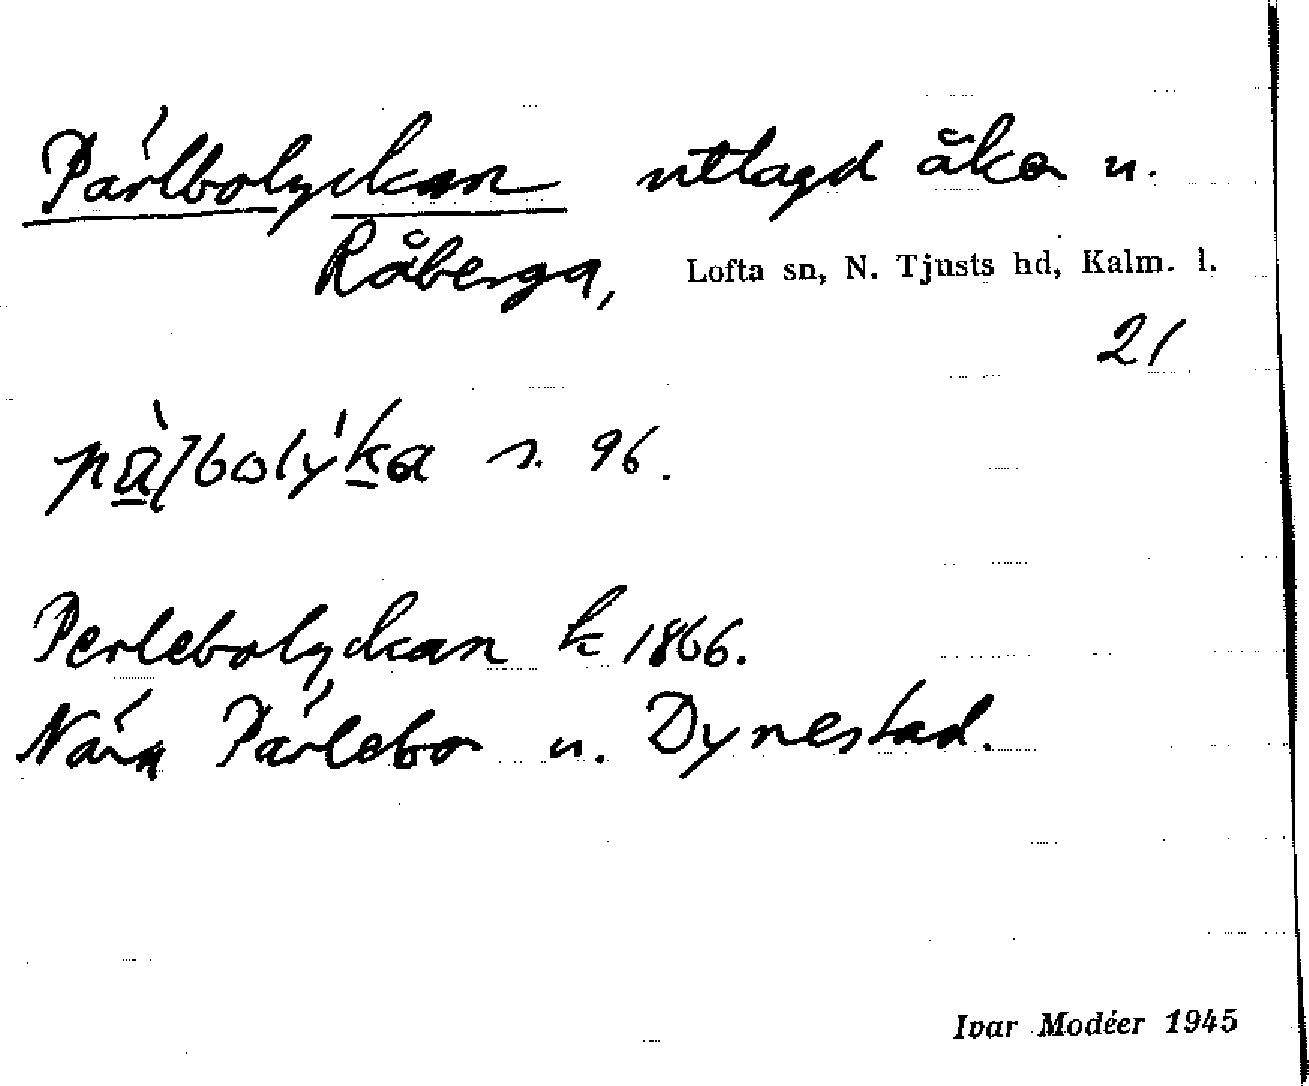 Pärlbolyckan utlagd åker u.
Råberga, Lofta sn, N. Tjusts hd, Kalm. l.
21
s. 96.
Perlebolyckan k 1866.
Nära Pärlebo u. Dynestad.
Ivar Modéer 1945